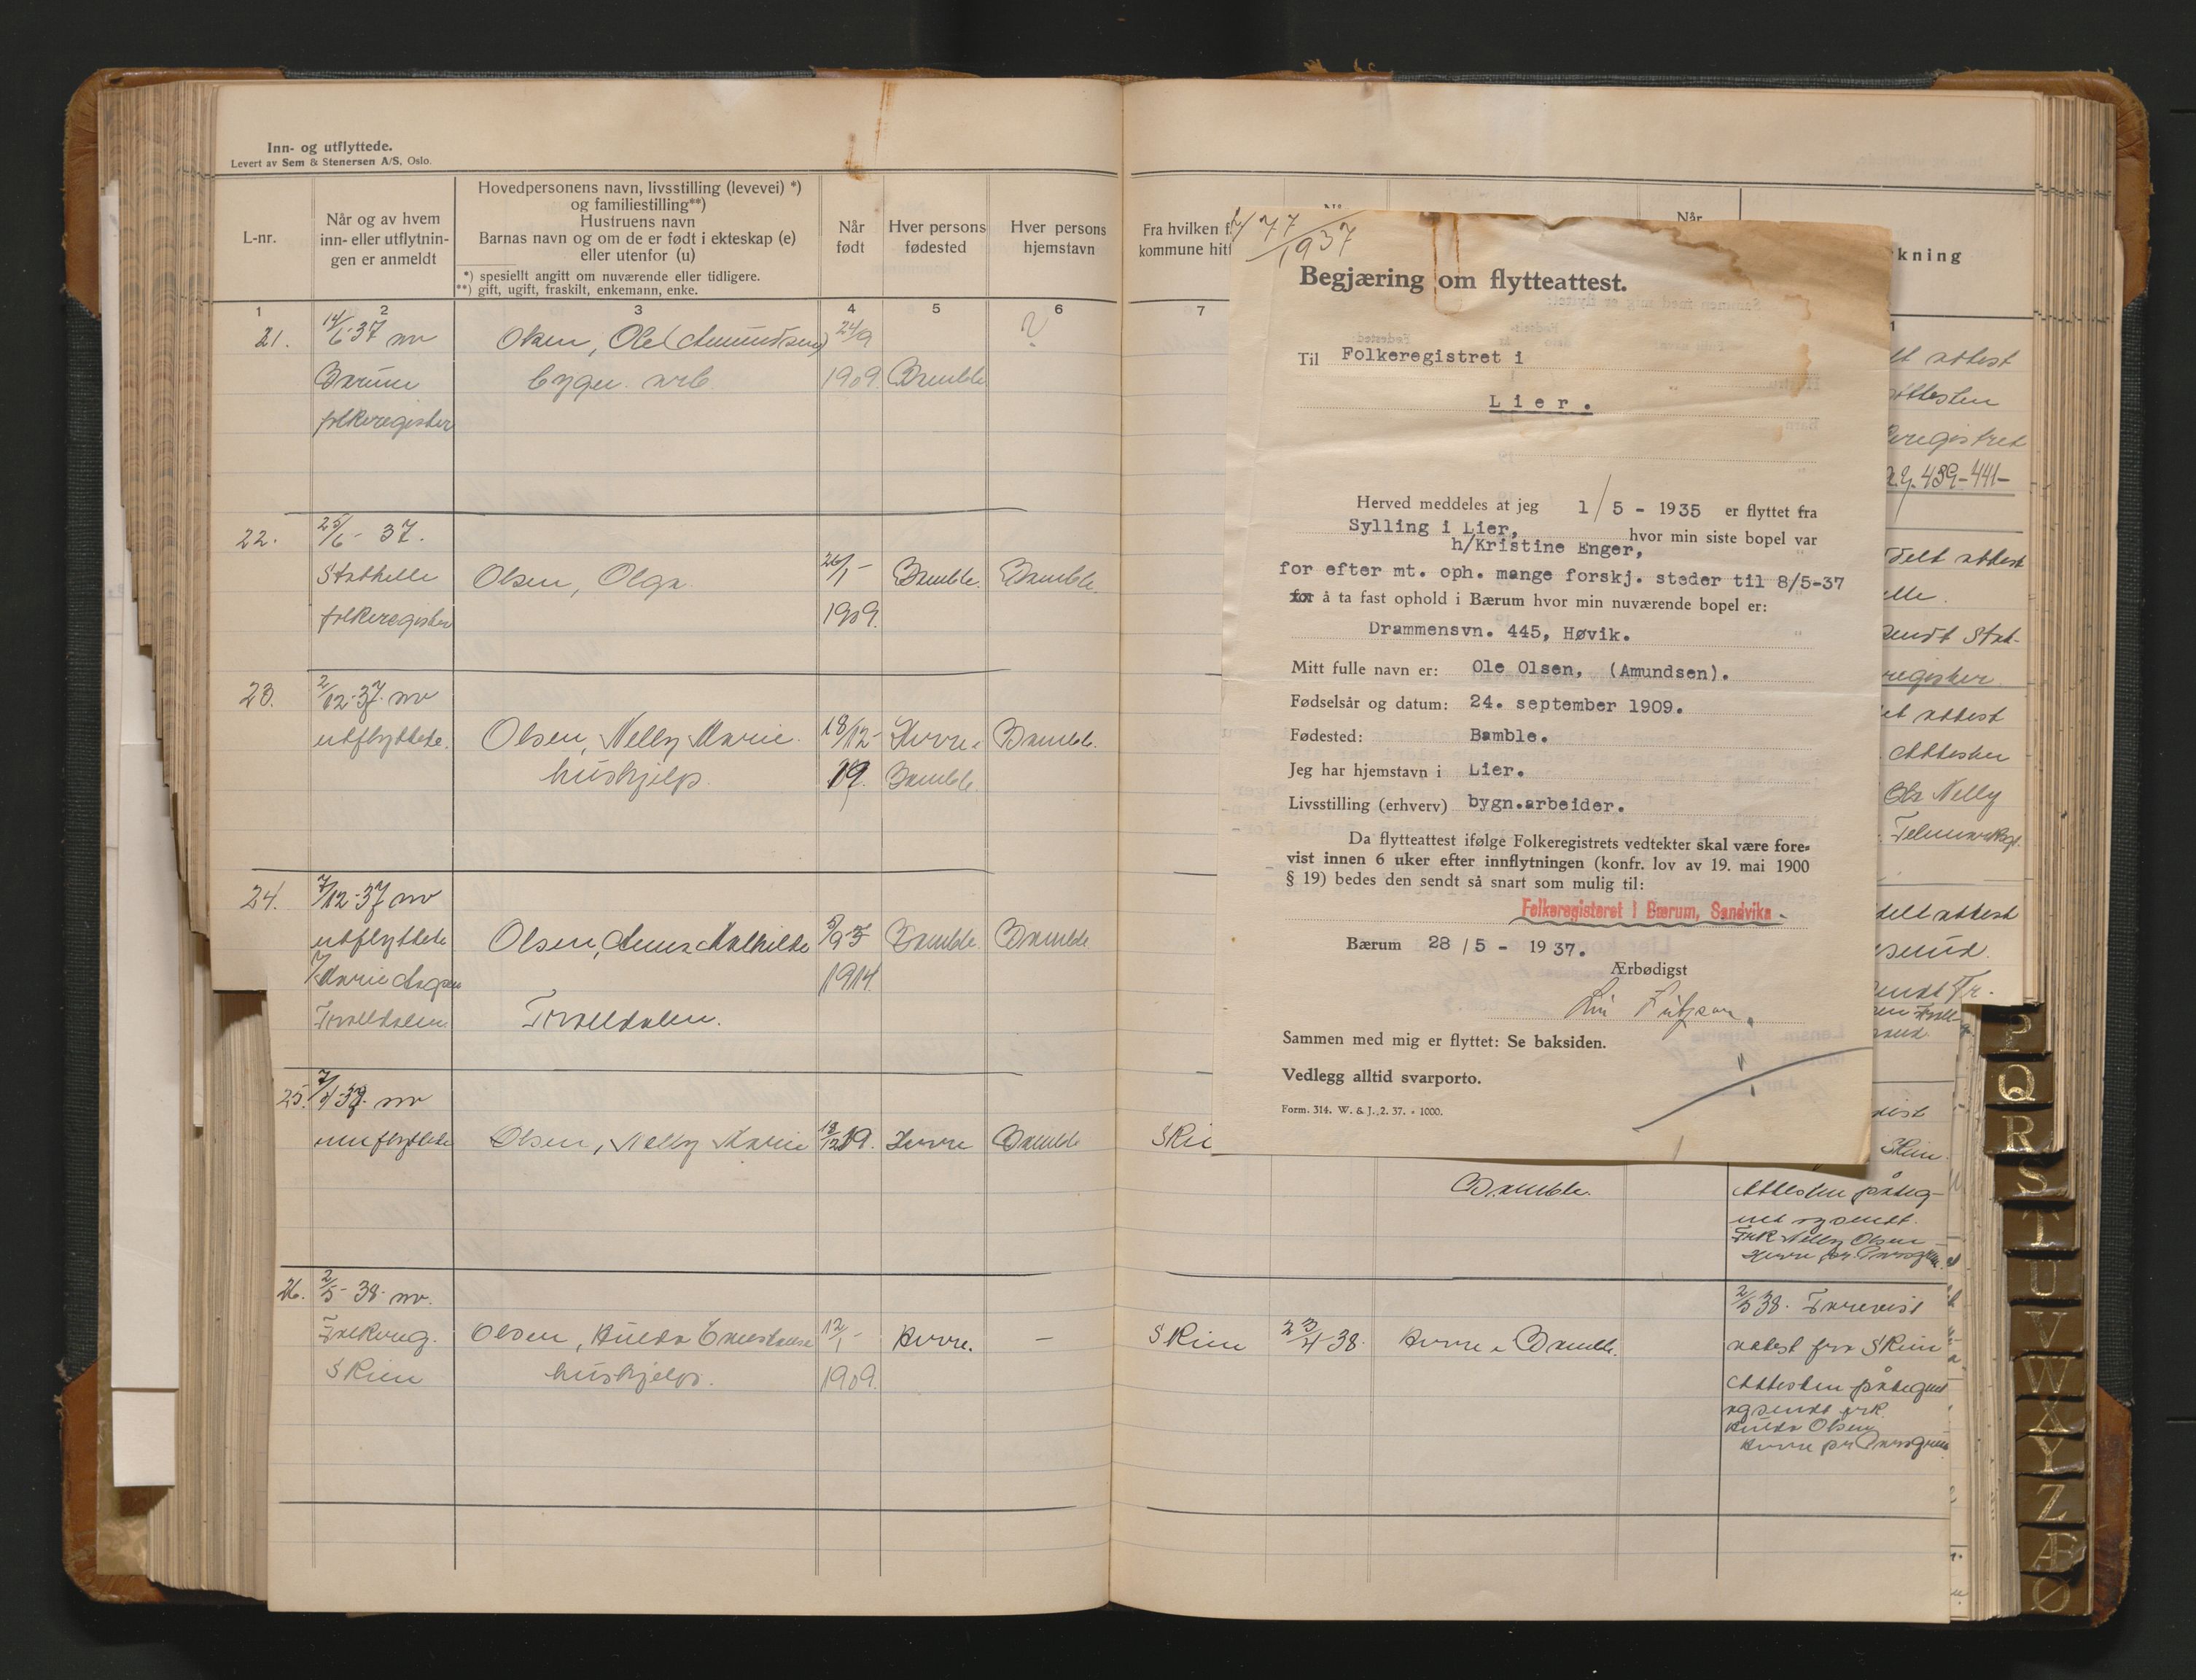 Inn- og utflyttede.
Levert av Sem & Stenersen A/S, Oslo.
L-nr.
Når og av hvem
inn- eller utflytnin-
gen er anmeldt
Hovedpersonens navn, livsstilling (levevei) *)
og familiestilling**)
Hustruens navn
Barnas navn og om de er født i ekteskap (e)
eller utenfor (u)
*) spesiellt angitt om nuværende eller tidligere.
**) gift, ugift, fraskilt, enkemann, enke.
Når
født
Hver persons
fødested
Hver persons
hjemstavn
1 2 3 4 5 6
21. 14/6-37 av Olsen, Ole (Amundsen) 24/9 ?
Bærum bygn. arb. 1909. Bamble
folkeregister
22. 25/6-37.
Stathelle Olsen, Olga. 26/1- Bamble. Bamble.
folkeregister 1909.
23. 2/12-37. av
utflyttede. Olsen, Nelly Marie. 18/12- Herre i Bamble.
hushjelp. 19. Bamble.
24. 7/12-37 av
utflyttede Olsen, Anna Mathilde Bamble. Bamble
1914.
Tralldalen. Tralldalen.
25. av
innflyttede Olsen, Nelly Marie 18/12 19. Herre Bamble
26. 2/5-38. av.
Folkereg. Olsen, Hulda 12/1- Herre. —
Skien hushjelp. 1909.
Fra hvilken f
kommune hitt
Når
kning
7
1
attest
attesten
registret
439-441-
delt attest
elle.
sendt Stat-
register.
attest
Attesten
Nelly
Telemarksgt.
delt attest
sund.
sendt Fr.
Ski
Skien.
Bamble. Attesten påteg-
net og sendt.
Frk Nelly Olsen
Herre pr. Porsgrunn.
2/5 38. Forevist
Skien 23/4-38. Herre i Bamble. attest fra Skien
Attesten påtegnet
og sendt frk.
Hulda Olsen
Herre pr Porsgrunn
77
/1937
Begjæring om flytteattest.
Til Folkeregistret i
Lier.
Herved meddeles at jeg 1/5 - 1935 er flyttet fra
Sylling i Lier, hvor min siste bopel var
h/Kristine Enger,
for efter mt. oph. mange forskj. steder til 8/5-37
for å ta fast ophold i Bærum hvor min nuværende bopel er:
Drammensvn. 445, Høvik.
Mitt fulle navn er: Ole Olsen, (Amundsen).
Fødselsår og datum: 24. september 1909.
Fødested: Bamble.
Jeg har hjemstavn i Lier.
Livsstilling (erhverv) bygn.arbeider.
Da flytteattest ifølge Folkeregistrets vedtekter skal være fore-
vist innen 6 uker efter innflytningen (konfr. lov av 19. mai 1900
§ 19) bedes den sendt så snart som mulig til:
Folkeregisteret i Bærum, Sandvika.
Bærum 28/5 - 1937.
Ærbødigst
Sammen med mig er flyttet: Se baksiden.
Vedlegg alltid svarporto.
Form. 314. W. & J. 2. 37. - 1000.
P
Q
R
S
T
U
V
W
X
Y
Z
Æ
Ø